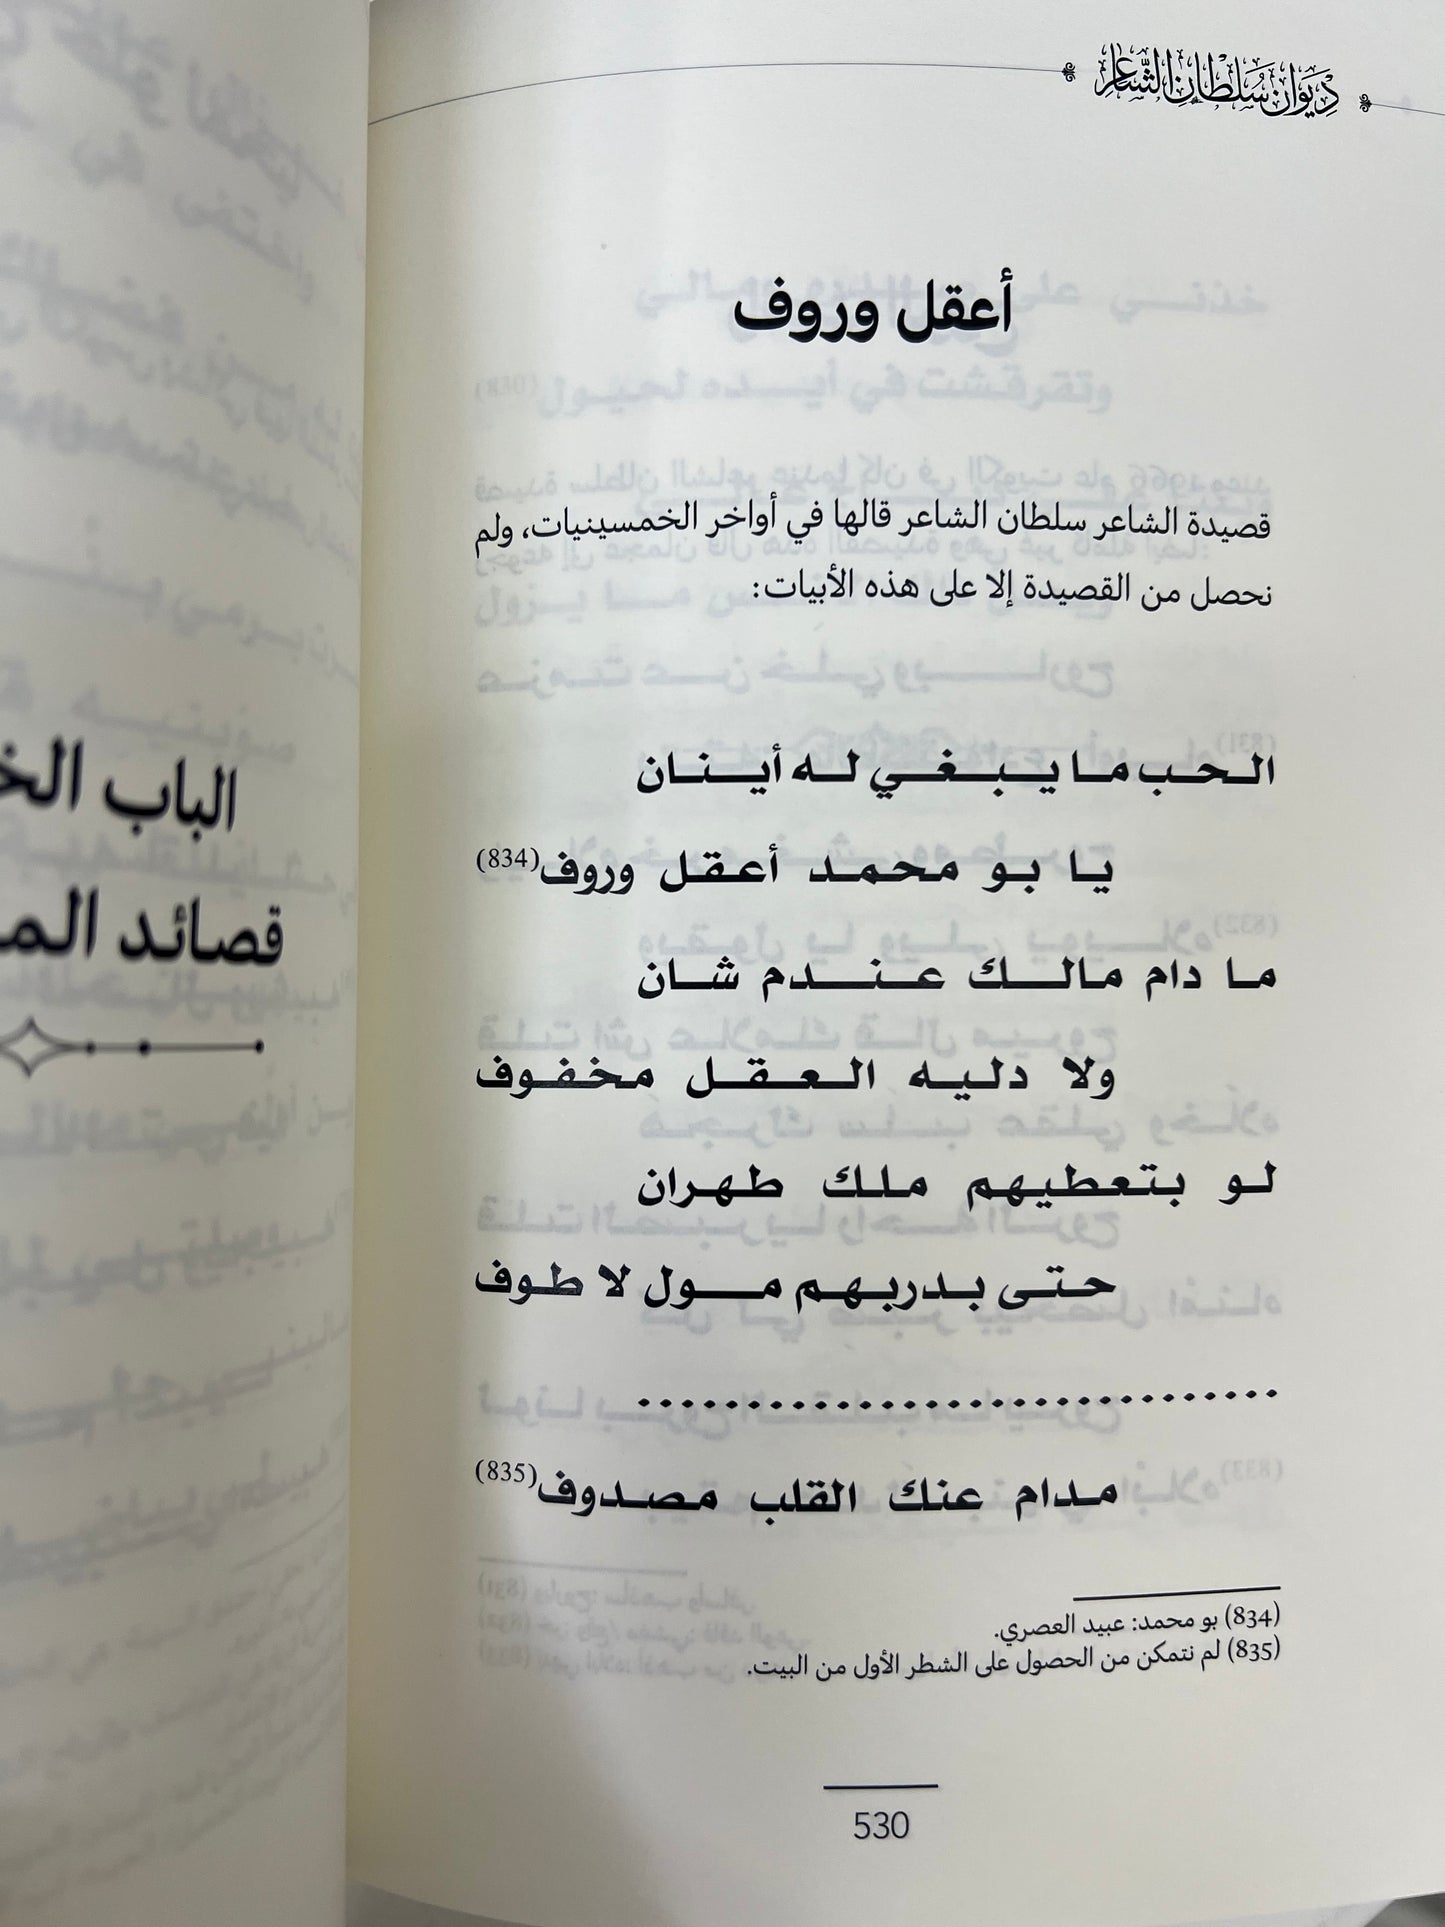 ديوان سلطان الشاعر
أعقل وروف
قصيدة الشاعر سلطان الشاعر قالها في أواخر الخمسينيات، ولم
نحصل من القصيدة إلا على هذه الأبيات:
الحب ما يبغي له أينان
يا بو محمد أعقل وروف(834)
ما دام مالك عندم شان
ولا دليه العقل مخفوف
لو بتعطيهم ملك طهران
حتى بدربهم مول لا طوف
..............................
مدام عنك القلب مصدوف(835)
(834) بو محمد: عبيد العصري.
(835) لم نتمكن من الحصول على الشطر الأول من البيت.
530
الباب
قصائد